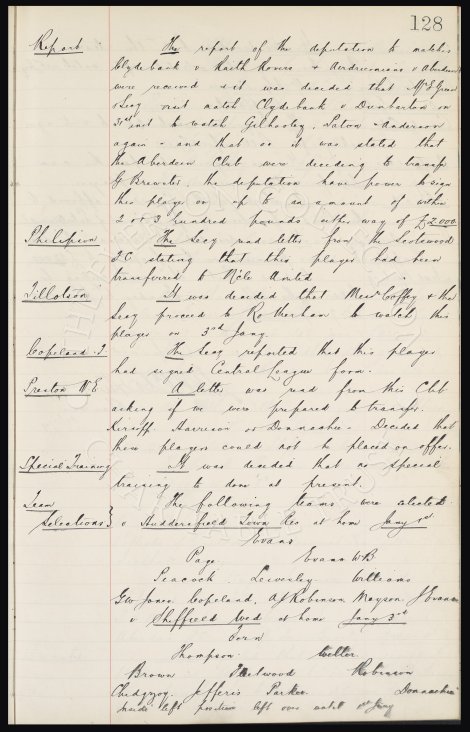 128
Report The report of the deputation to matches
Clydebank v Raith Rovers + Airdrieonians v Aberdeen
were received + it was decided that Mr Green
+ Secy visit match Clydebank v Dumbarton on
31st inst to watch Gilhooley, Paton + Anderson
again - and that as it was stated that
the Aberdeen Club were deciding to transfer
G Brewster, the deputation have power to sign
this player on up to an amount of within
2 or 3 hundred pounds either way of £2000
Philipson The Secy read letter from the Scotswood
FC stating that this player had been
transferred to N'cle United
Tillotson It was decided that Messrs Coffey + the
Secy proceed to Rotherham to watch this
player on 3rd Jany.
Copeland J. The Secy reported that this player
had signed Central League form.
Preston N.E A letter was read from this Club
asking if we were prepared to transfer
Kirsopp, Harrison or Donnachie - Decided that
these players could not be placed on offer.
Special Training It was decided that no special
training be done at present.
Team The following teams were selected
Selections } v Huddersfield Town Res at home Jany 1st
Evans
Page Evans W B
Peacock Lewesley Williams
G W Jones Copeland, A J Robinson Mayson J Evans
v Sheffield Wed at home Jany 3rd
Fern
Thompson Weller
Brown Fleetwood Robinson
Chedgzoy Jefferis Parker Donnachie
Inside left position left over until 1st Jany